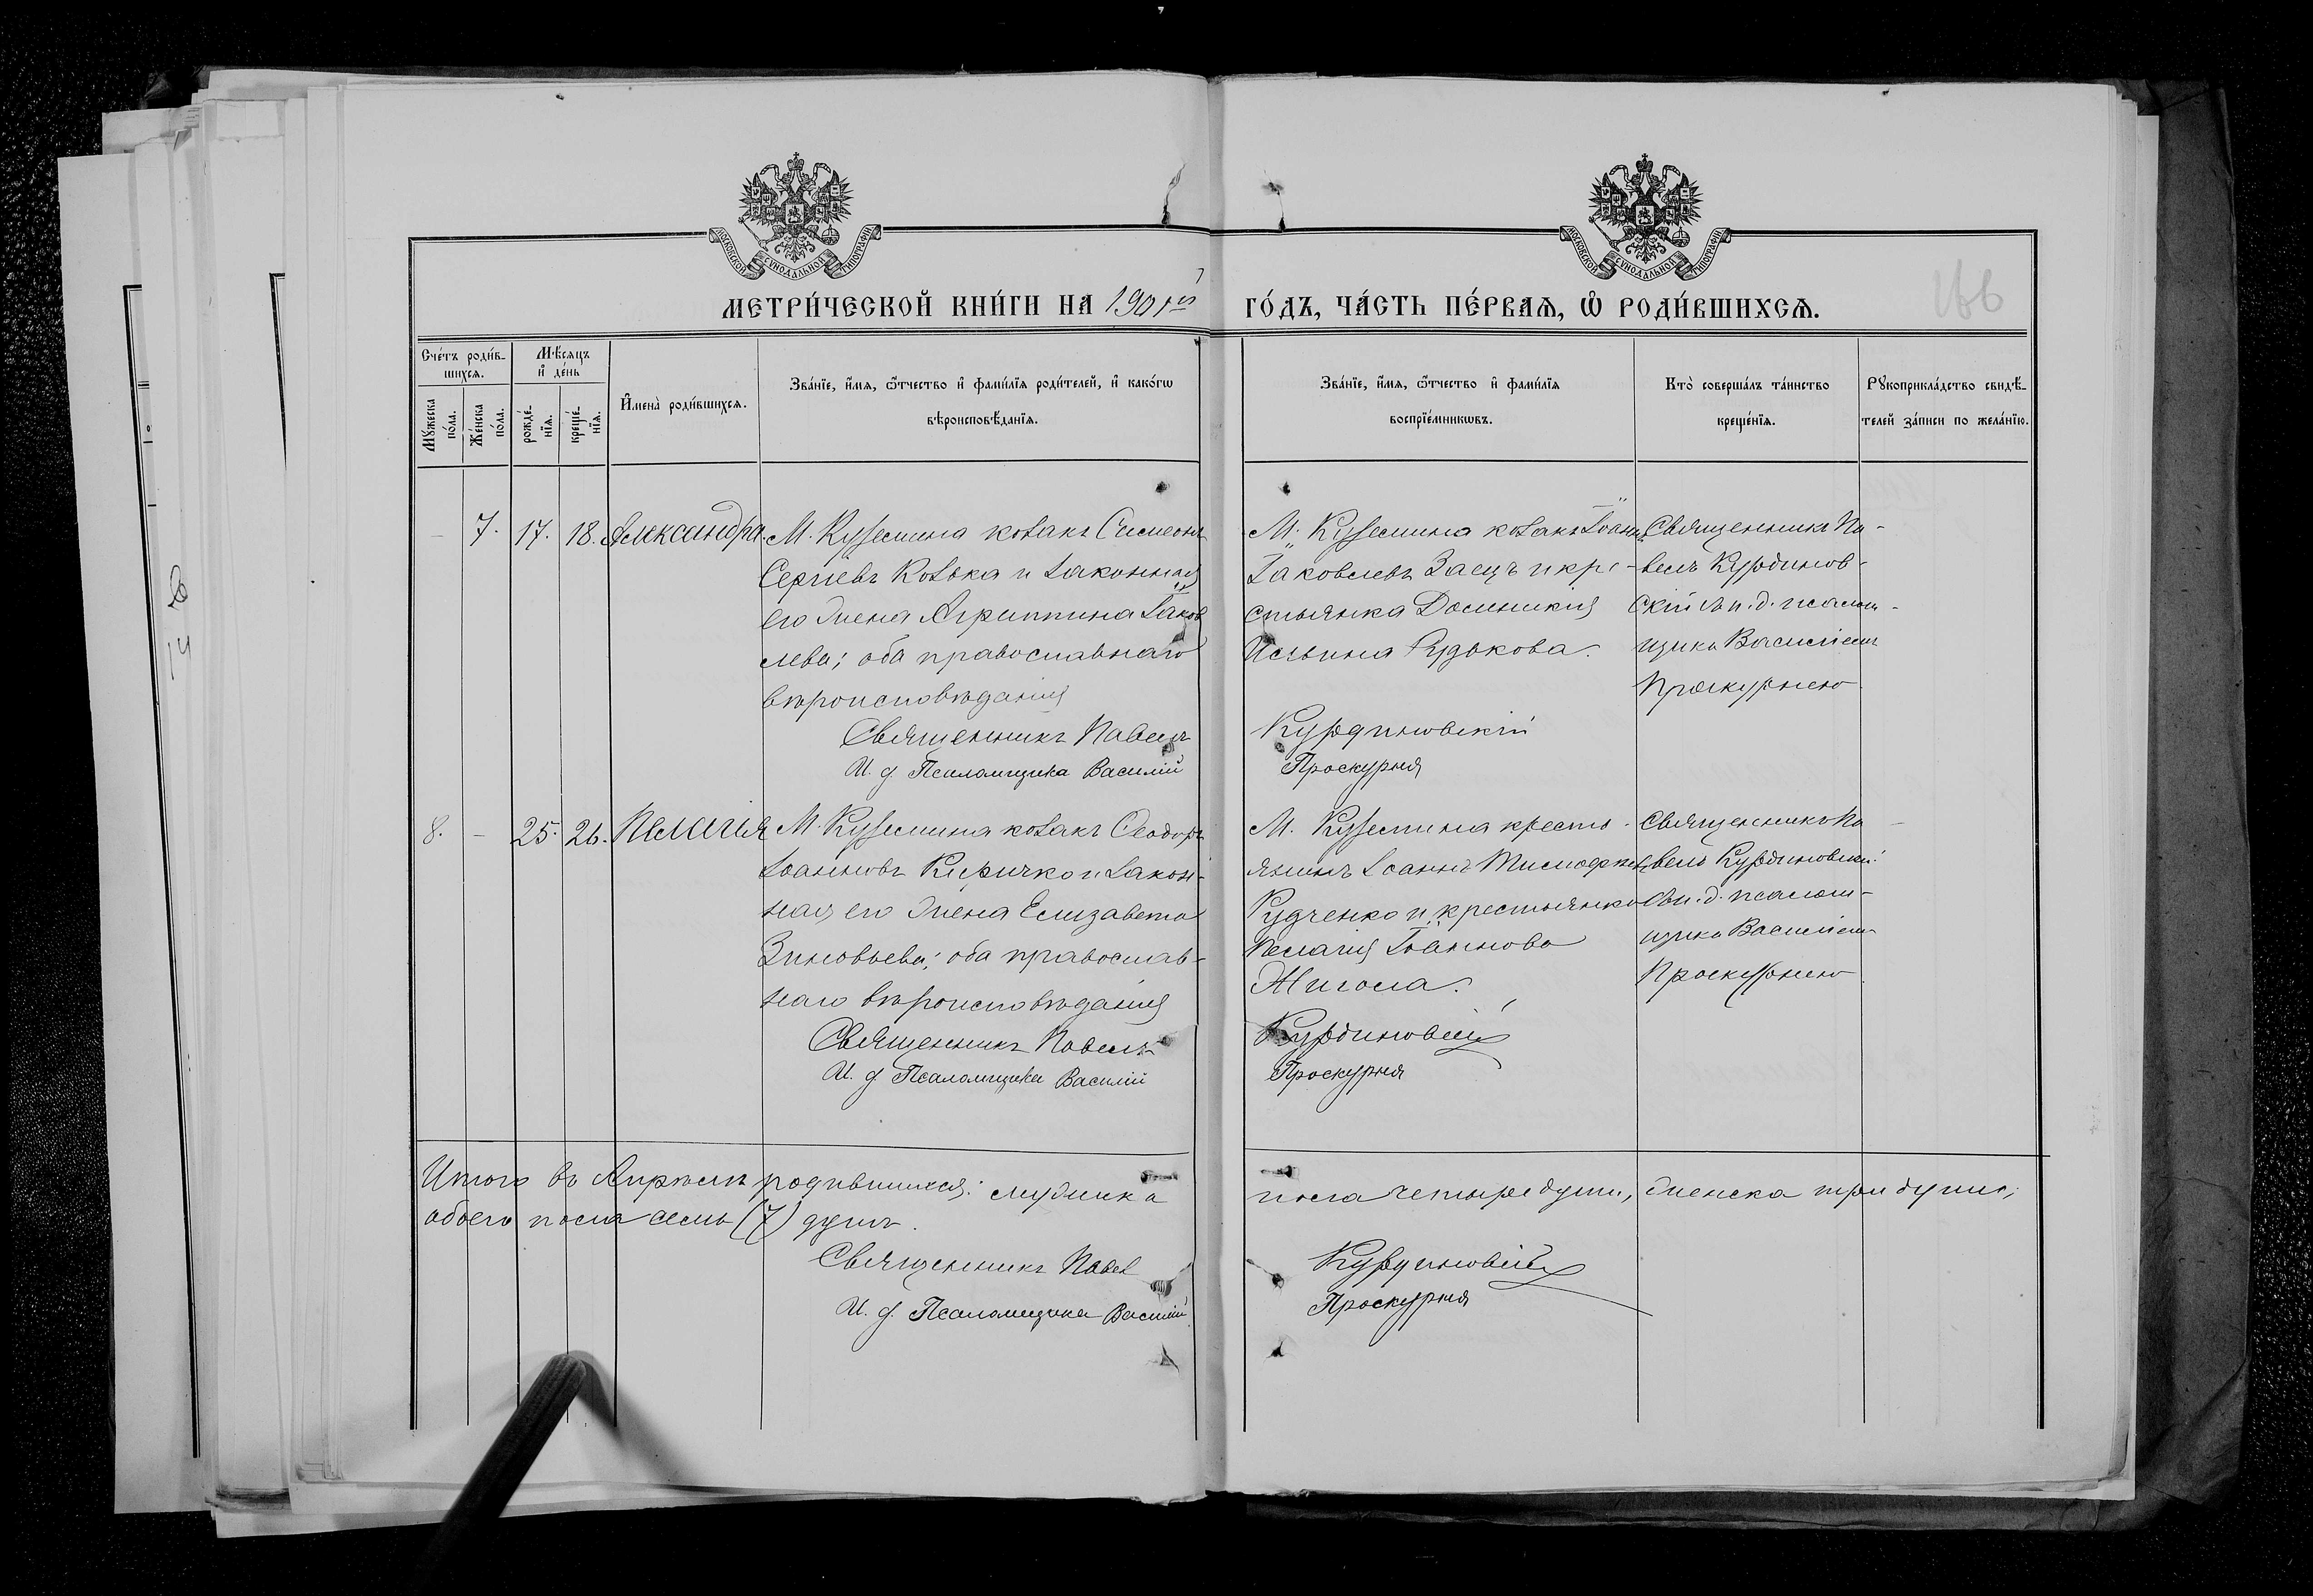 МОСКОВСКОЙ СѴНОДАЛЬНОЙ ТИПОГРАФІИ
МОСКОВСКОЙ СѴНОДАЛЬНОЙ ТИПОГРАФІИ
МЕТРИ́ЧЕСКОЙ КНИ́ГИ НА 1901й
ГО́ДЪ, ЧА́СТЬ ПЕ́РВАѦ, Ѡ РОДИ́ВШИХСѦ.
166
Сче́тъ роди́в-
шихсѧ.
Мꙋ́жеска
по́ла.
Же́нска
по́ла.
Мѣ́сѧцъ
и҆ де́нь
рожде́-
нїѧ.
креще́-
нїѧ.
И҆мена̀ роди́вшихсѧ.
Зва́нїе, и҆́мѧ, ѻ҆́тчество и҆ фами́лїѧ роди́телей, и҆ како́гѡ
вѣроисповѣ́данїѧ.
Зва́нїе, и҆́мѧ, ѻ҆́тчество и҆ фами́лїѧ
воспрїе́мникѡвъ.
Кто̀ соверша́лъ та́инство
креще́нїѧ.
Рꙋкоприкла́дство свидѣ́-
телей за́писи по жела́нїю.
– 7. 17. 18. Александра.
М. Куземина козакъ Симеонъ
Сергіевъ Козька и законная
его жена Агриппина Іаков
лева; оба православнаго
вѣроисповѣданія
Священникъ Павелъ
И. д. Псаломщика Василій
М. Куземина козакъ Іоаннъ
Іаковлевъ Заецъ и кре-
стьянка Домникія
Ильина Рудькова.
Курдиновскій
Проскурня
Священникъ Па-
велъ Курдинов-
скій съ и. д. псалом-
щика Василіемъ
Проскурнею
8. – 25. 26. Пелагія
М. Куземина козакъ Ѳеодоръ
Іоанновъ Киричко и закон-
ная его жена Елизавета
Зиновьева; оба православ-
наго вѣроисповѣданія
Священникъ Павелъ
И. д. Псаломщика Василій
М. Куземина кресть-
янинъ Іоаннъ Тимофеевъ
Рудченко и крестьянка
Пелагія Іоаннова
Жигола.
Курдиновскій
Проскурня
Священникъ Па-
велъ Курдиновскій
съ и. д. псалом-
щика Василіемъ
Проскурнею
Итого въ Апрѣлѣ родившихся: мужска
пола четыре души, женска три души;
обоего пола семь (7) душъ.
Священникъ Павел
Курдиновскій
И. д. Псаломщика Василій
Проскурня